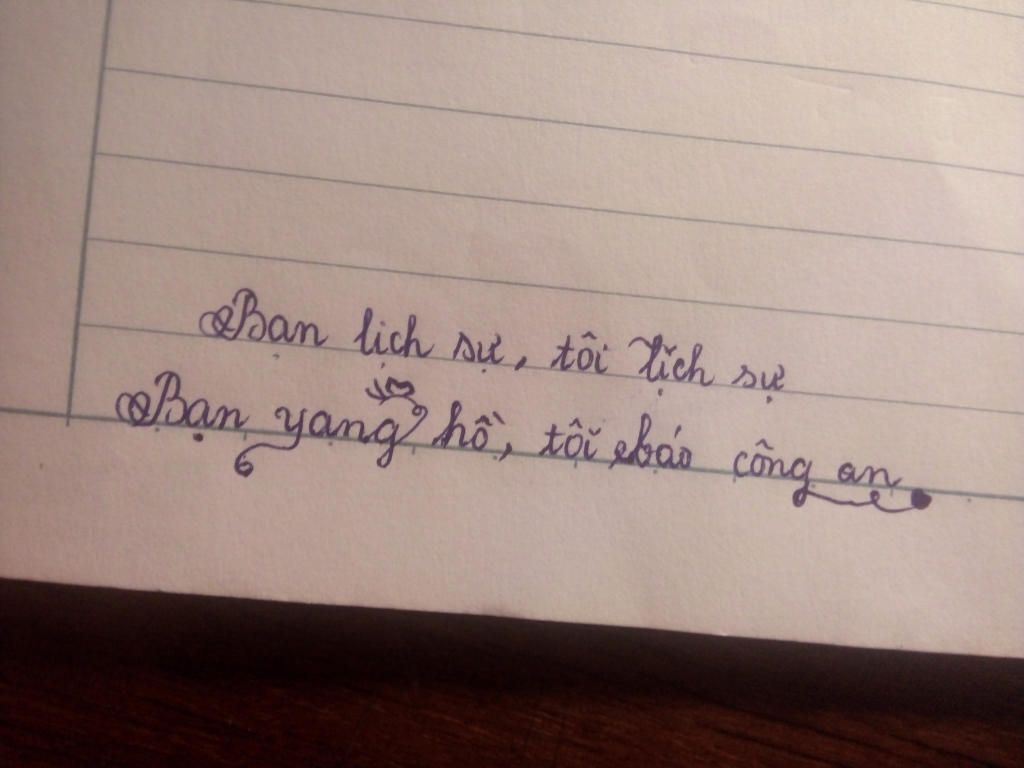 Bạn lịch sự, tôi lịch sự
Bạn yang hồ, tôi báo công an